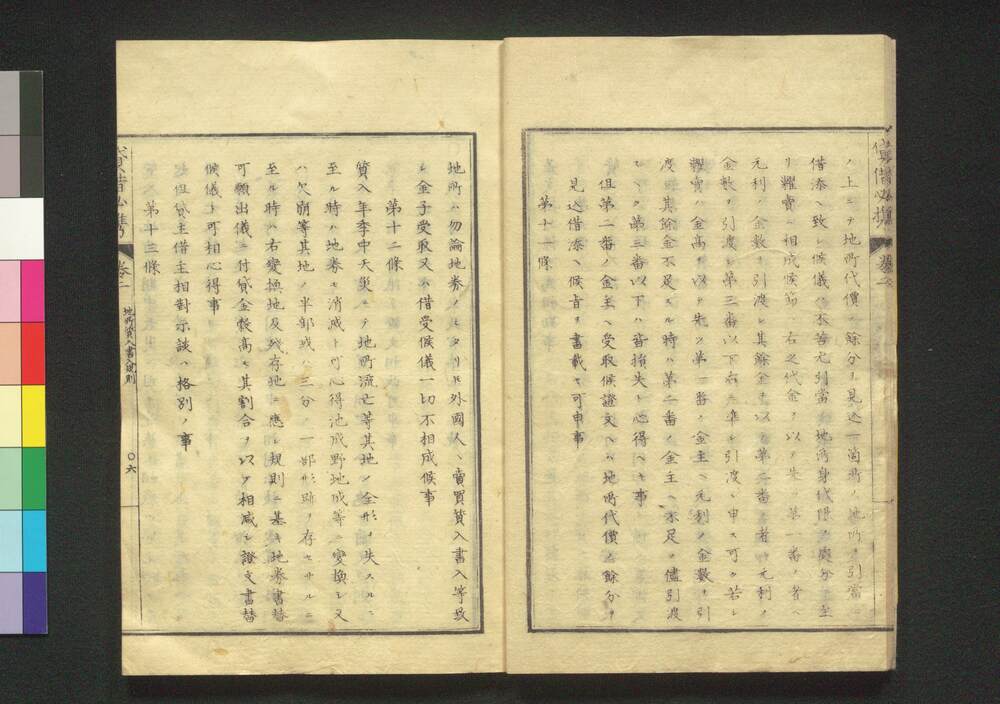 ノ上ニテ地所代價ノ餘分ヲ見込一箇所ノ地所ヲ引當ニ
借添ヘ致シ候儀ハ不苦尤引當ノ地所身代限ノ處分ニ至
リ糶賣ニ相成候節ハ右之代金ヲ以テ先ツ第一番ノ者ヘ
元利ノ金數ヲ引渡シ其餘金ヲ以テ第二番ノ者ヘ元利ノ
金數ヲ引渡シ第三番以下右ニ準シ引渡シ申ス可ク若シ
糶賣ノ金高ヲ以テ先ツ第一番ノ金主ヘ元利ノ金數ヲ引
渡シ其餘金不足スル時ハ第二番ノ金主ヘ不足ノ儘引渡
シテ第三番以下ハ皆損失ト心得ヘキ事
但第二番ノ金主ヘ受取候證文ヘハ地所代價ノ餘分ヲ
見込借添ヘ候旨ヲ書載セ可申事
第十一條
地所ハ勿論地券ノミタリトモ外國人ヘ賣買質入書入等致
シ金子受取又ハ借受候儀一切不相成候事
第十二條
質入年季中天災ニテ地所流亡等其地ノ全形ヲ失スルニ
至ル時ハ地券モ消滅ト可心得池成野地成等ニ變換シ又
ハ欠崩等其地ノ半部或ハ三分ノ一部形跡ヲ存セサルニ
至ル時ハ右變換地及殘存地ニ應シ規則ニ基キ地券書替
可願出儀ニ付貸金穀高モ其割合ヲ以テ相減シ證文書替
候儀ト可相心得事
但貸主借主相對示談ハ格別ノ事
第十三條
卷二
地所質入書入規則
〇六